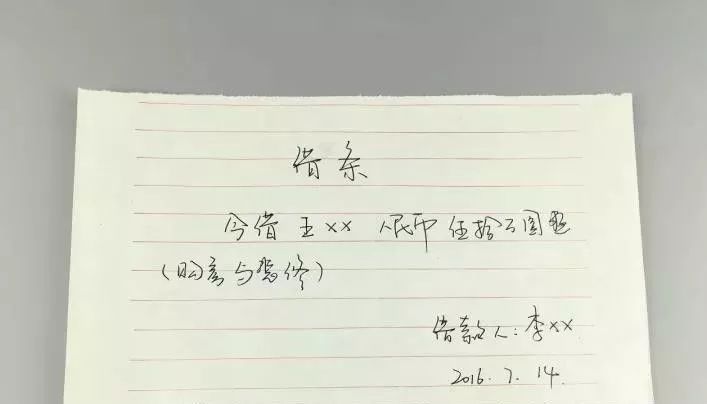 借条
今借王×× 人民币伍拾万圆整
借款人:李××
2016.7.14